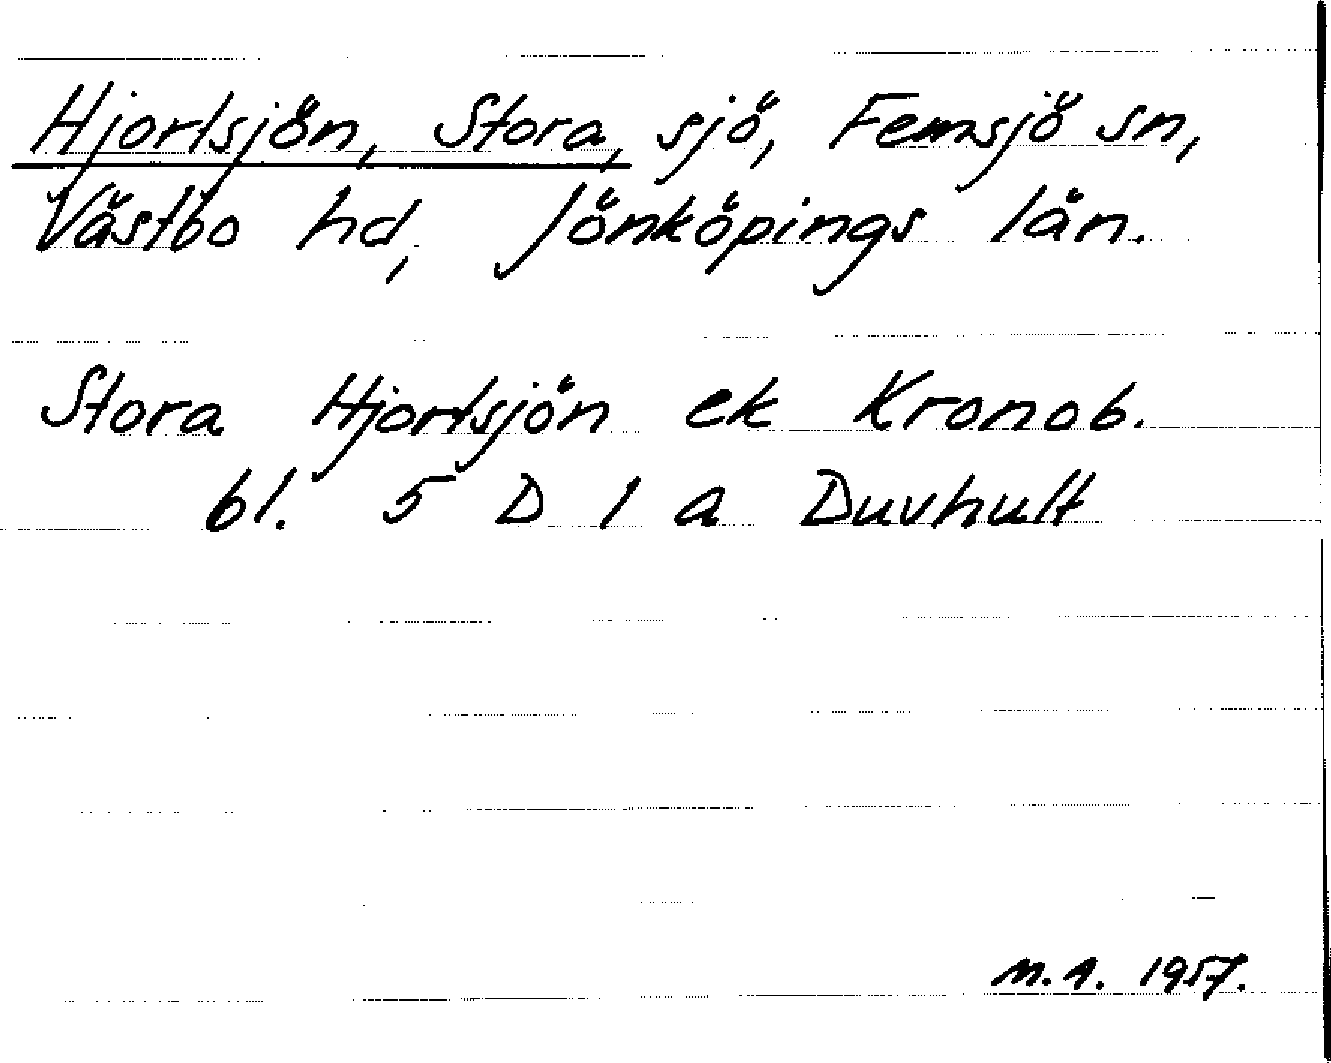 Hjortsjön, Stora, sjö, Femsjö sn,
Västbo hd, Jönköpings län.
Stora Hjortsjön ek Kronob.
bl. 5 D 1 a Duvhult
M.A. 1957.